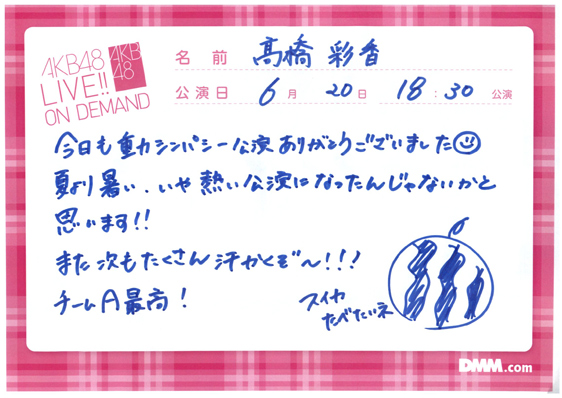 AKB48
LIVE!!
ON DEMAND
AKB
48
名前 高橋 彩香
公演日 6月 20日 18:30 公演
今日も重力シンパシー公演ありがとうございました
夏より暑い、いや熱い公演になったんじゃないかと
思います!!
また次もたくさん汗かくぞ〜!!!
チームA最高!
スイカ
たべたいネ
DMM.com